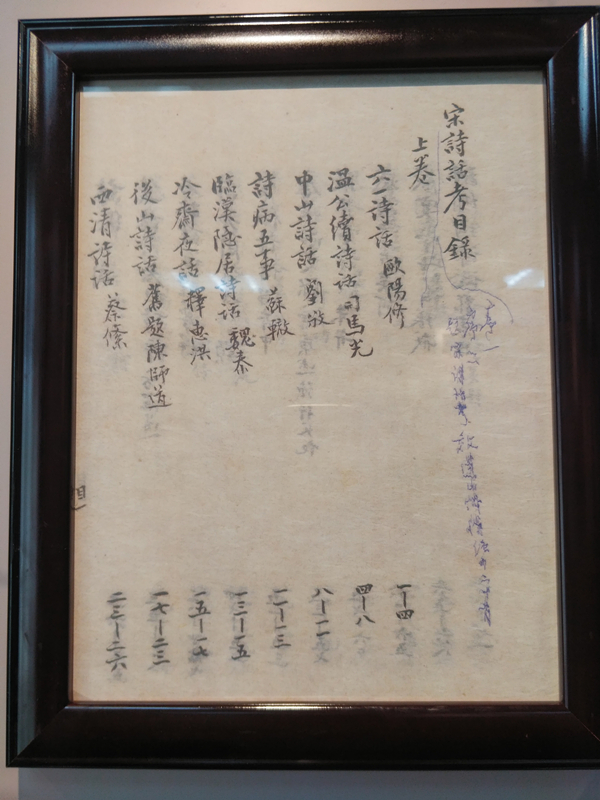 宋詩話考目錄
上卷
六一詩話 歐陽修 一—四
溫公續詩話 司馬光 四—八
中山詩話 劉攽 八—一一
詩病五事 蘇轍 一一—一三
臨漢隐居詩話 魏泰 一三—一五
冷齋夜話 釋惠洪 一五—一七
後山詩話 舊題陳師道 一七—二三
西清詩話 蔡絛 二三—二六